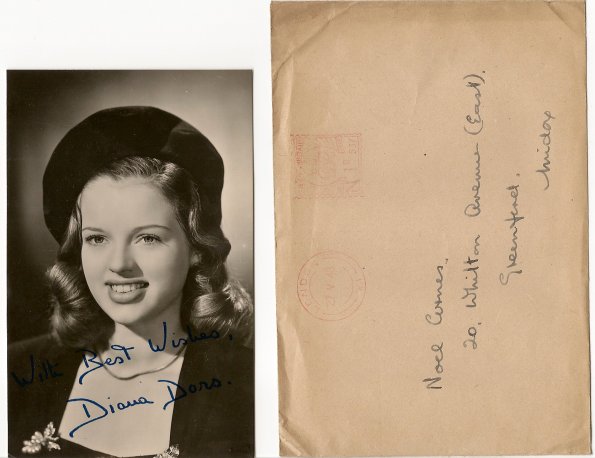 With Best Wishes,
Diana Dors.
Noel Cornes,
20, Whitton Avenue (East),
Greenford.
Middx